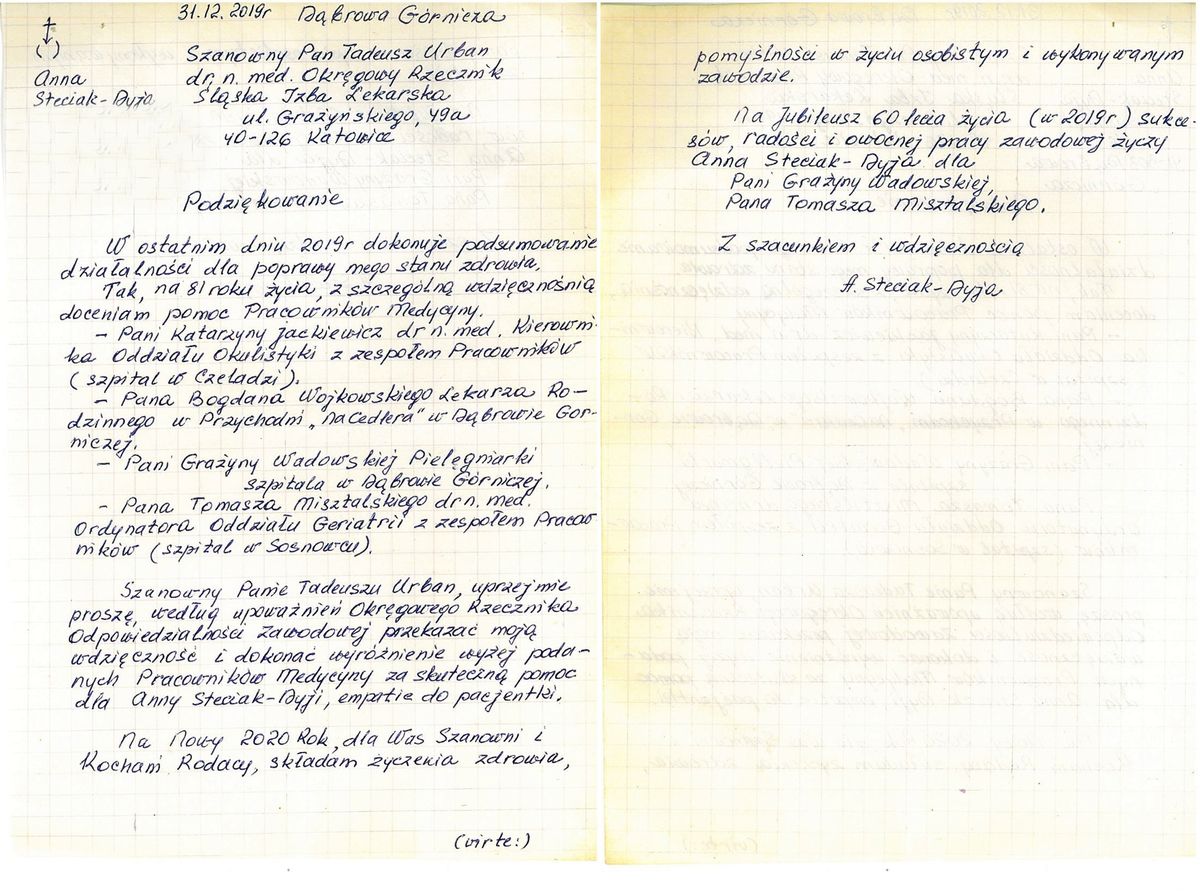 31.12.2019r Dąbrowa Górnicza
(-)
Anna
Steciak-Dyja
Szanowny Pan Tadeusz Urban
dr. n. med. Okręgowy Rzecznik
Śląska Izba Lekarska
ul. Grażyńskiego, 49a
40-126 Katowice
Podziękowanie
W ostatnim dniu 2019r dokonuję podsumowanie
działalności dla poprawy mego stanu zdrowia.
Tak, na 81 roku życia, z szczególną wdzięcznośnią
doceniam pomoc Pracowników Medycyny.
– Pani Katarzyny Jackiewicz dr n. med. Kierowni-
ka Oddziału Okulistyki z zespołem Pracowników
(szpital w Czeladzi).
– Pana Bogdana Wojkowskiego Lekarza Ro-
dzinnego w Przychodni „na Cedlera" w Dąbrowie Gór-
niczej.
– Pani Grażyny Wadowskiej Pielęgniarki
szpitala w Dąbrowie Górniczej.
- Pana Tomasza Misztalskiego dr n. med.
Ordynatora Oddziału Geriatrii z zespołem Pracow
ników (szpital w Sosnowcu).
Szanowny Panie Tadeuszu Urban, uprzejmie
proszę, według upoważnień Okręgowego Rzecznika
Odpowiedzialności Zawodowej przekazać moją
wdzięczność i dokonać wyróżnienie wyżej poda-
nych Pracowników Medycyny za skuteczną pomoc
dla Anny Steciak-Dyji, empatię do pacjentki.
Na Nowy 2020 Rok, dla Was Szanowni i
Kochani Rodacy, składam życzenia zdrowia,
(virte:)
pomyślności w życiu osobistym i wykonywanym
zawodzie.
Na Jubileusz 60 lecia życia (w 2019r) sukce-
sów, radości i owocnej pracy zawodowej życzy
Anna Steciak-Dyja dla
Pani Grażyny Wadowskiej,
Pana Tomasza Misztalskiego.
Z szacunkiem i wdzięcznością
A. Steciak-Dyja